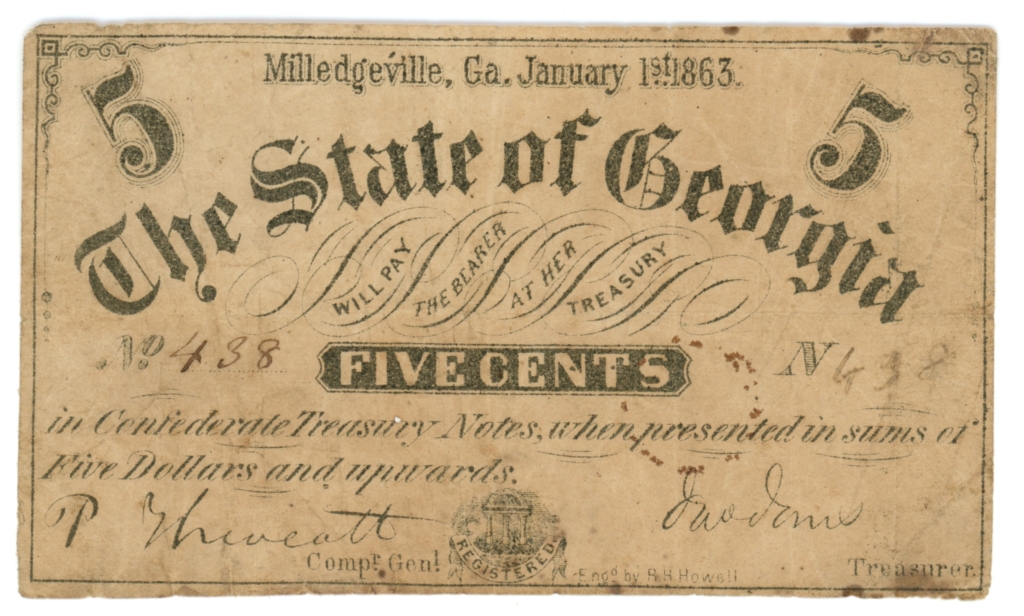 Milledgeville, Ga. January 1st 1863.
5 5
The State of Georgia
WILL PAY THE BEARER AT HER TREASURY
No 438 FIVE CENTS N 438
in Confederate Treasury Notes, when presented in sums of
Five Dollars and upwards.
Jno Jones
Compt. Genl. REGISTERED Treasurer.
Engd by R.H. Howell